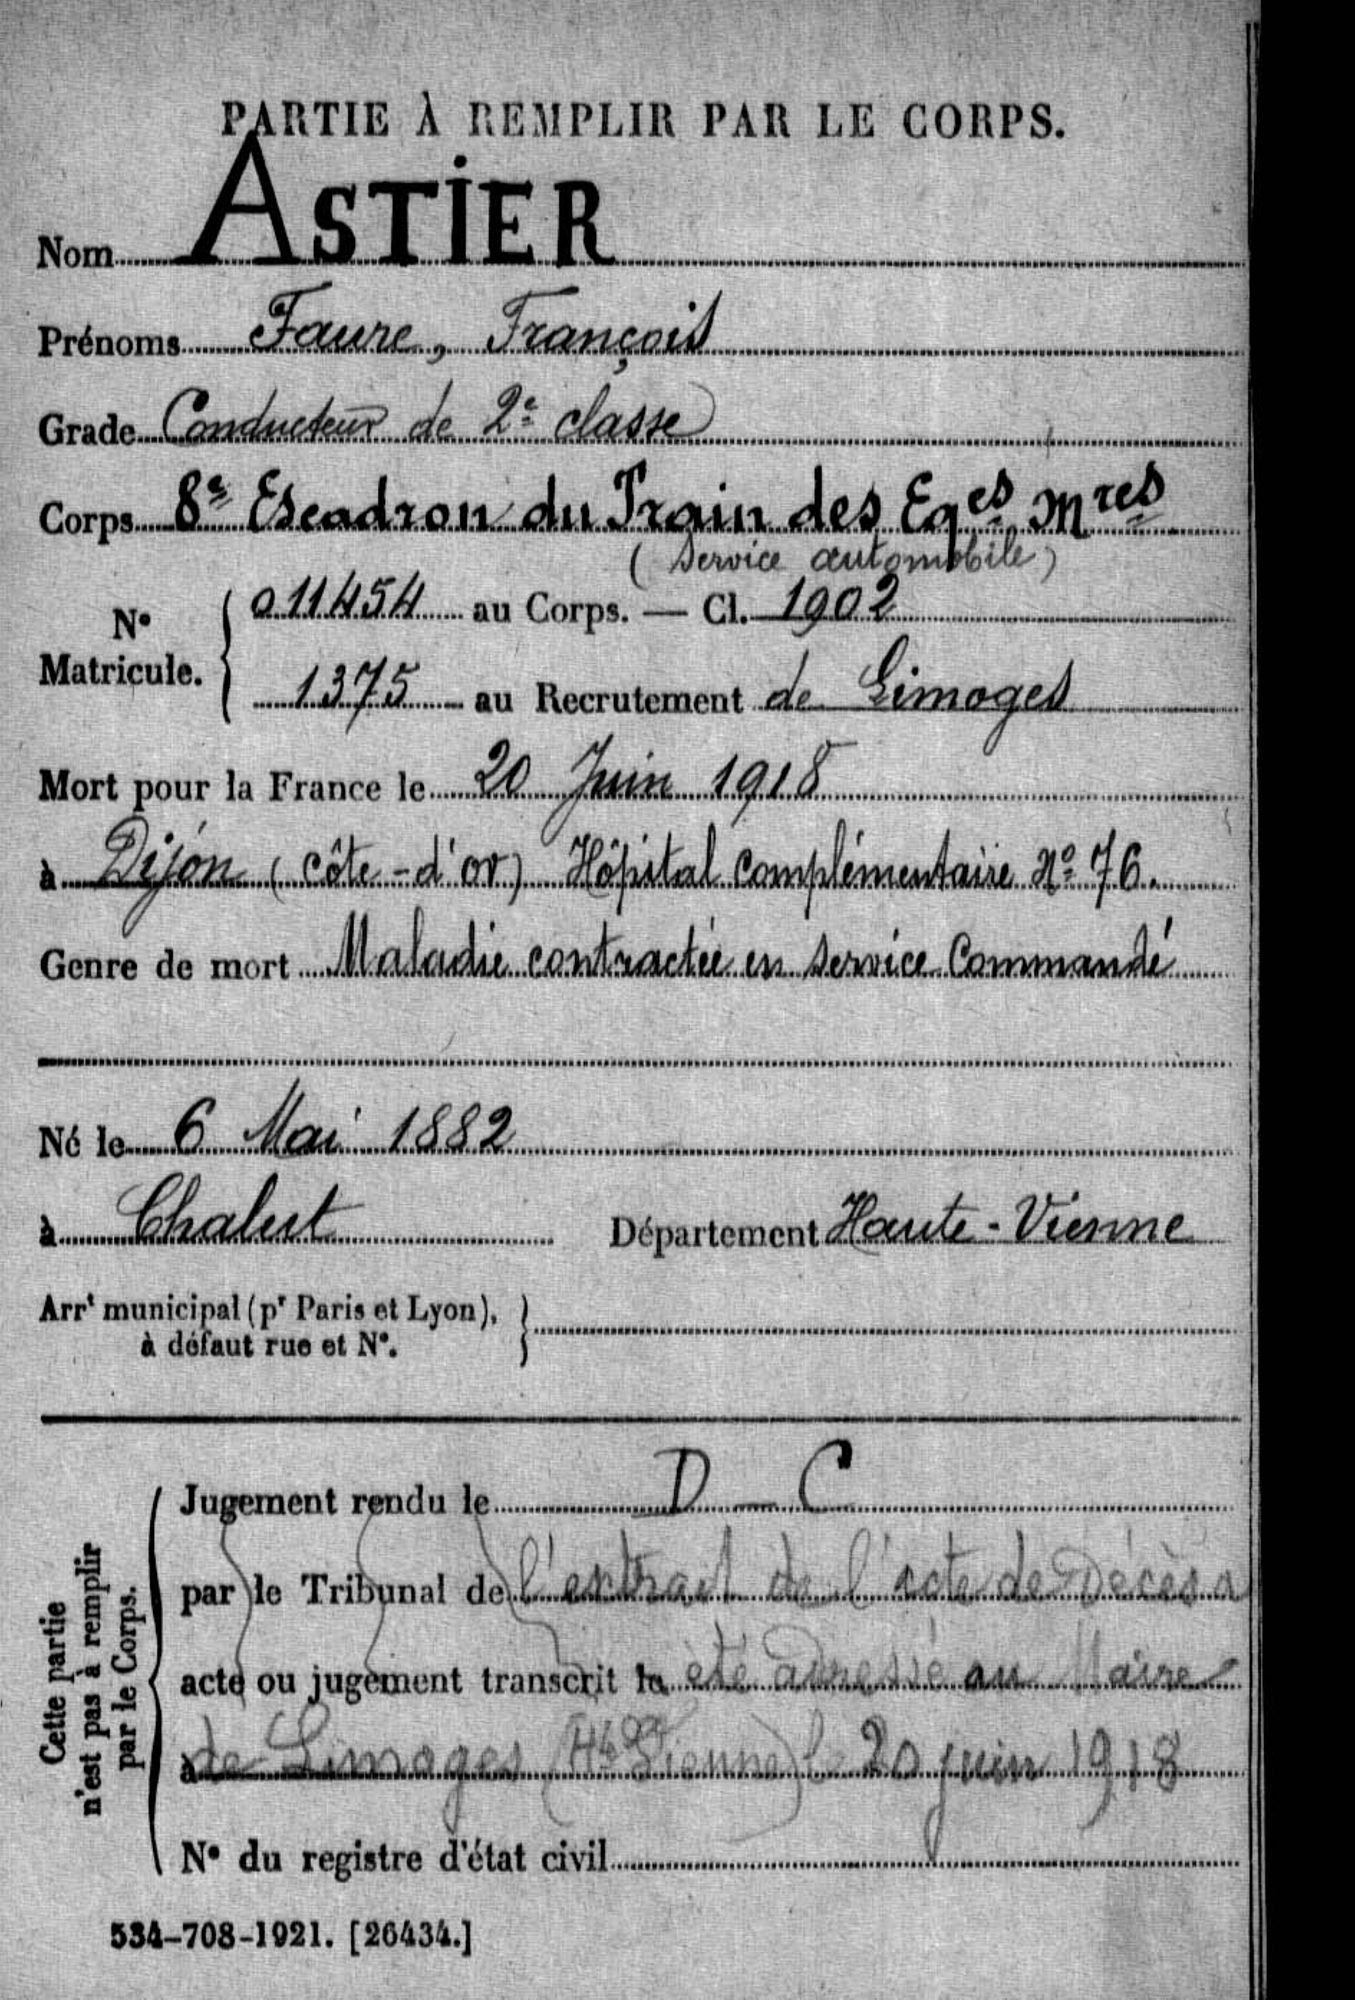 PARTIE À REMPLIR PAR LE CORPS.
Nom ASTIER
Prénoms Faure, François
Grade Conducteur de 2e classe
Corps 8e Escadron du Train des Eqes Mres
(Service automobile)
No Matricule. { 011454 au Corps. — Cl. 1902
1375 au Recrutement de Limoges
Mort pour la France le 20 Juin 1918
à Dijon (Côte-d'or) Hôpital Complémentaire No 76.
Genre de mort Maladie contractée en service Commandé
Né le 6 Mai 1882
à Département Haute-Vienne
Arrt municipal (pr Paris et Lyon), }
à défaut rue et No.
Cette partie
n'est pas à remplir
par le Corps.
Jugement rendu le D — C
par le Tribunal de l'extrait de l'acte de Décès a
acte ou jugement transcrit le été adressé au Maire
à de Limoges (Hte Vienne) le 20 juin 1918
No du registre d'état civil
534-708-1921. [26434.]